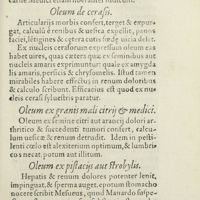 Oleum de cerasis.
Articularijs morbis confert, terget & expur-
gat, calculū è renibus & uesica expellit, panos
faciei, lētigines & cętera cutis fœda uitia delet.
Ex nucleis cerasorum expressum oleum eas
habet uires, quas cætera quæ ex semīnibus aut
nucleis amaris exprimuntur: quale ex amygda
lis amaris, persicis & chrysomelis. Istud tamen
mirabiles habere effectus in renum doloribus
& calculo scribunt. Efficacius est quod ex nu-
cleis cerasi syluestris paratur.
Oleum ex granis mali citrij & medici.
Oleum ex semine citri aut arancij dolori ar-
thritico & succedenti tumori confert, calculum
uesicæ & renum detrudit. Idem in pesti-
lenti cœlo est alexiterium optimum, & lumbri-
cos necat, potum aut illitum.
Oleum ex pistacijs aut strobylis.
Hepatis & renum dolores potenter lenit,
impinguat, & sperma auget, epotum stomacho
nocere scribit Mesueus, quod Manardo suspe-